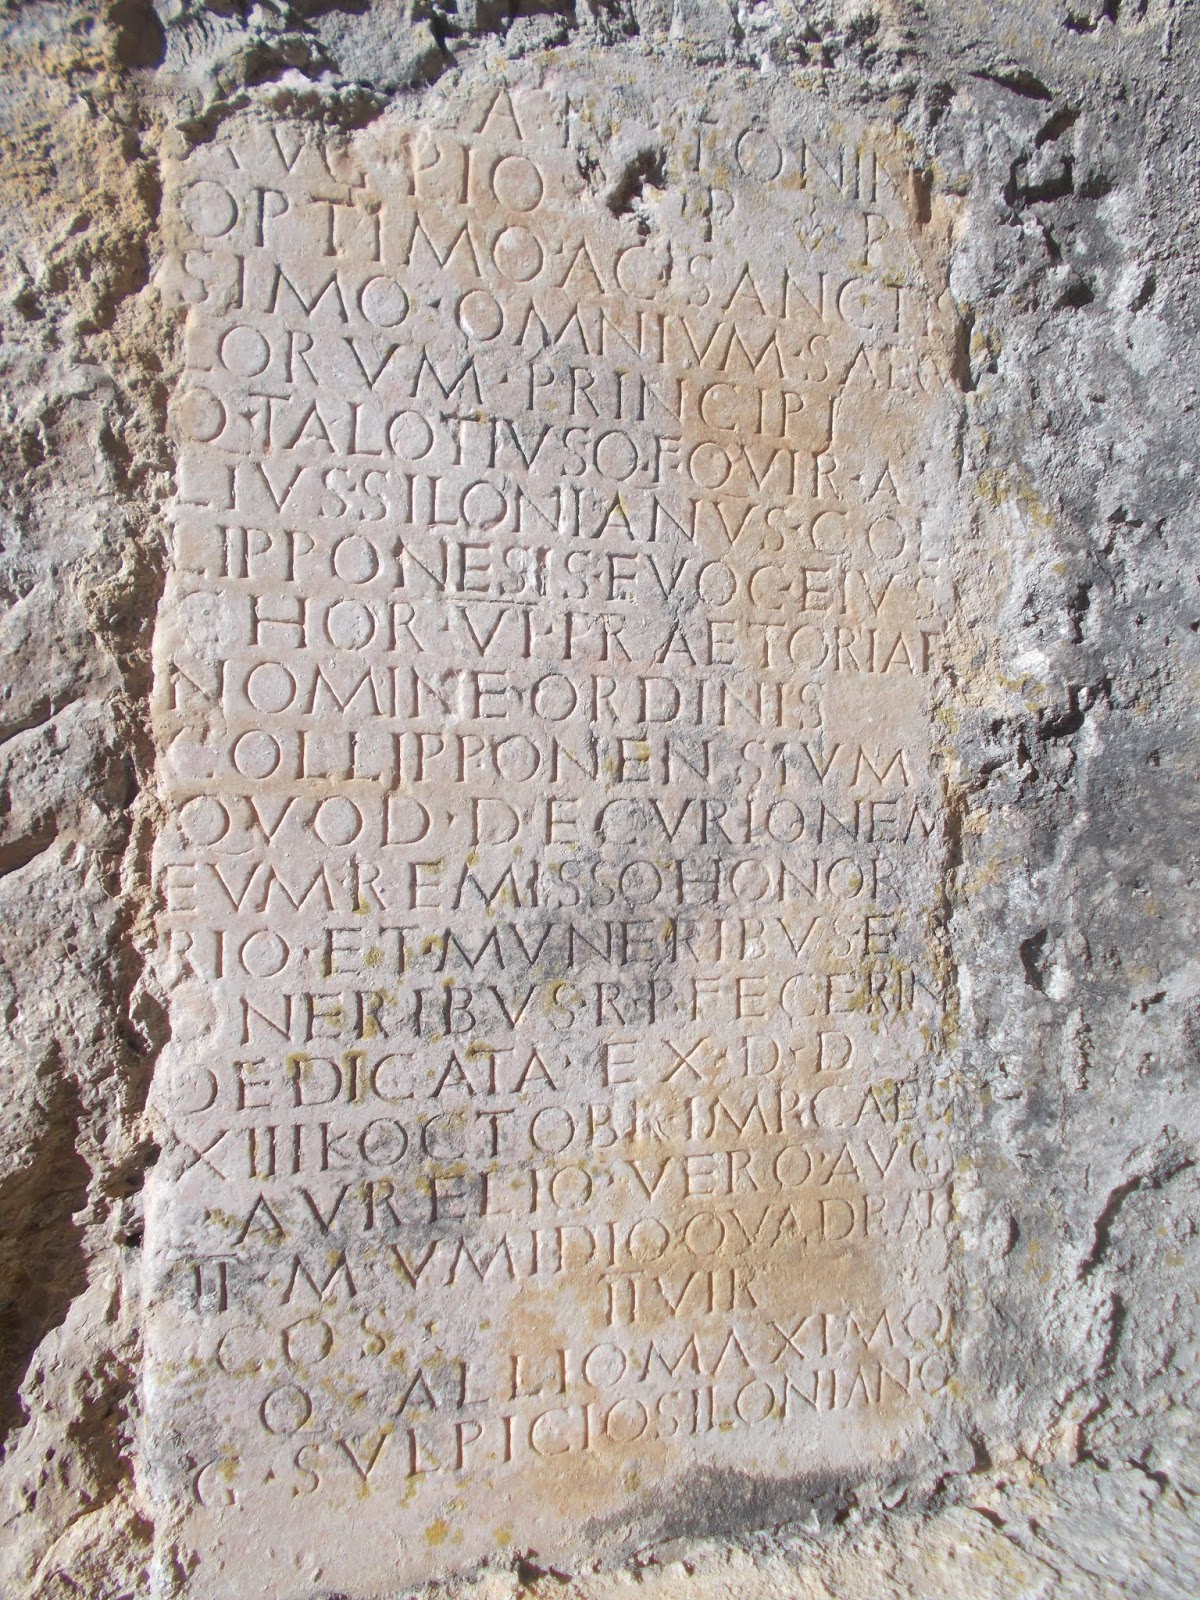 AVG PIO P P
OPTIMO·AC·SANCTIS
SIMO·OMNIVM·SAECV
LORVM·PRINCIPI
Q·TALOTIVS Q·F·QVIR·A
LIVS·SILONIANVS·COL
LIPPONESIS·EVOC·EIVS
CHOR·VI·PRAETORIAE
NOMINE·ORDINIS
COLLIPPONENSIVM
QVOD·DECVRIONEM
EVM REMISSO HONOR
RIO·ET·MVNERIBVS E
ONERIBVS·R·P·FECERIN
DEDICATA·EX·D·D
XIIII K OCTOBR·IMP·CAES
AVRELIO·VERO·AVG
II·M VMMIDIO QVADRATO
COS IIVIR
Q·ALLIO MAXIMO
G·SVLPICIO SILONIANO